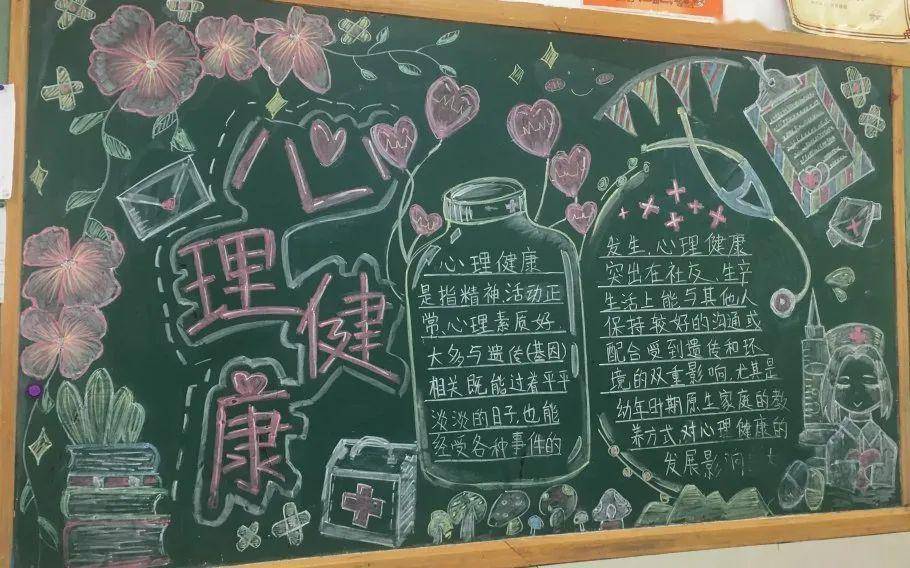 心
理
健
康
心理健康
是指精神、活动正
常、心理素质好
大多与遗传(基因)
相关既能过着平平
淡淡的日子,也能
经受各种事件的
发生,心理健康
突出在社友、生辛
生活上能与其他人
保持较好的沟通或
配合受到遗传和环
境的双重影响,尤其是
幼年时期原生家庭的教
养方式,对心理健康的
发展影响